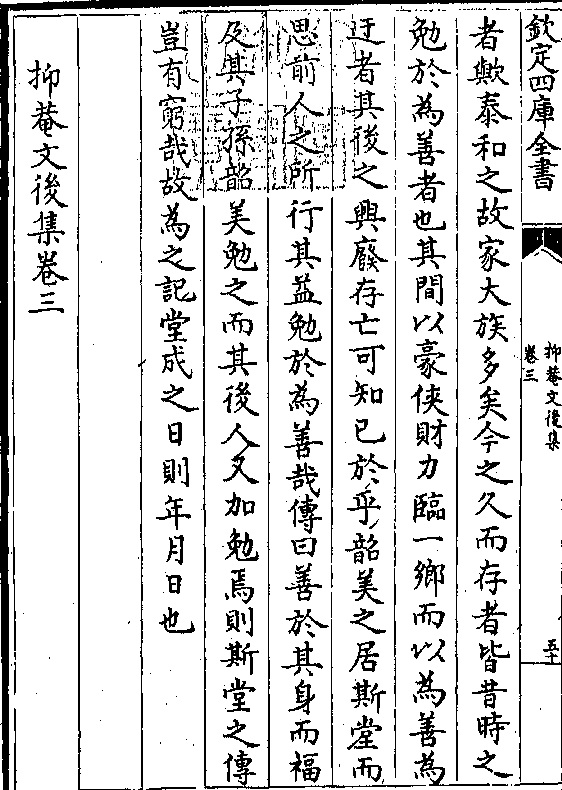 欽定四庫全書
抑菴文後集
卷三
五十
者歟泰和之故家大族多矣今之久而存者皆昔時之
勉於為善者也其間以豪俠財力臨一鄉而以為善為
迂者其後之興廢存亡可知已於乎韶美之居斯堂而
思前人之所行其益勉於為善哉傳曰善於其身而福
及其子孫韶美勉之而其後人又加勉焉則斯堂之傳
豈有窮哉故為之記堂成之日則年月日也
抑菴文後集卷三